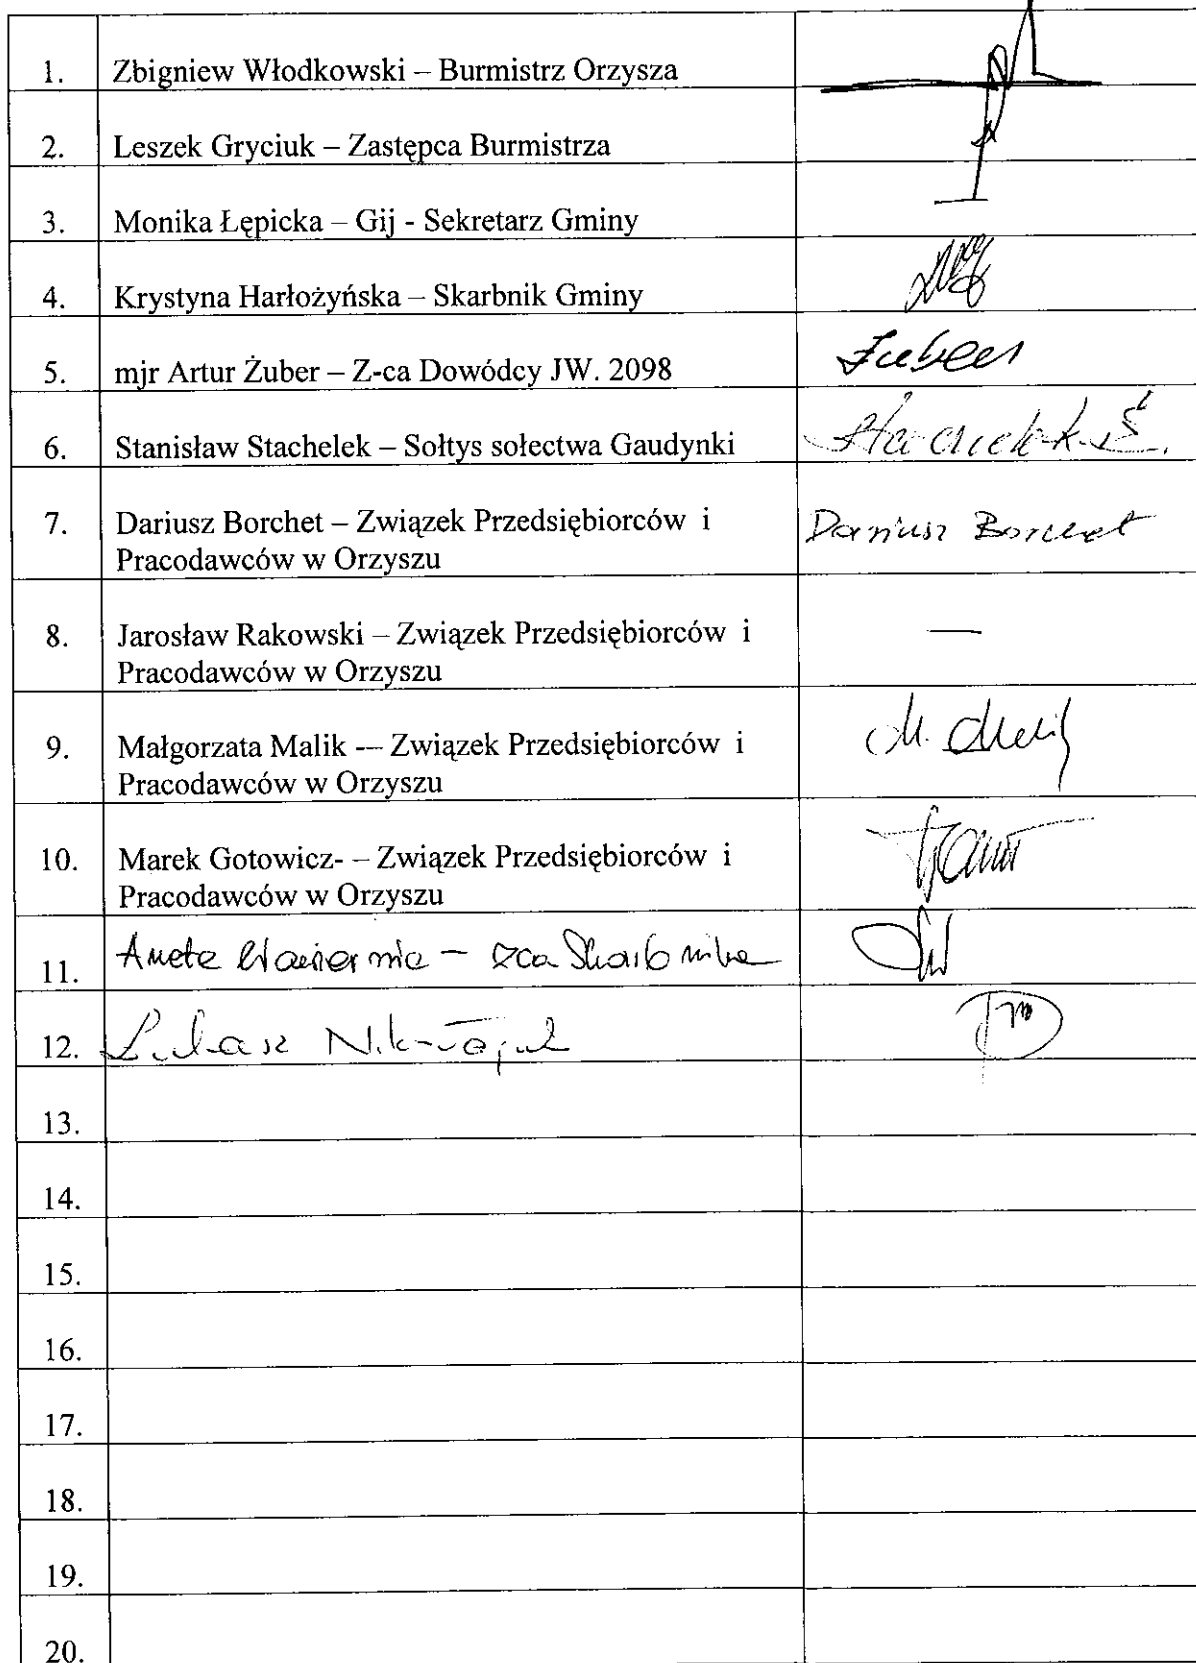 1. Zbigniew Włodkowski – Burmistrz Orzysza
2. Leszek Gryciuk – Zastępca Burmistrza
3. Monika Łępicka – Gij - Sekretarz Gminy
4. Krystyna Harłożyńska – Skarbnik Gminy
5. mjr Artur Żuber – Z-ca Dowódcy JW. 2098 Żuber
6. Stanisław Stachelek – Sołtys sołectwa Gaudynki Stachelek S.
7. Dariusz Borchet – Związek Przedsiębiorców i Dariusz Borchet
Pracodawców w Orzyszu
8. Jarosław Rakowski – Związek Przedsiębiorców i —
Pracodawców w Orzyszu
9. Małgorzata Malik -– Związek Przedsiębiorców i M. Malik
Pracodawców w Orzyszu
10. Marek Gotowicz- – Związek Przedsiębiorców i
Pracodawców w Orzyszu
11. Aneta – zca Skarbnika
12. Łukasz
13.
14.
15.
16.
17.
18.
19.
20.